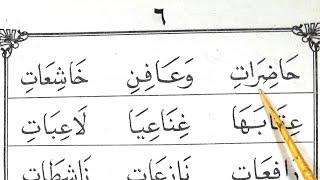 ٦
حَاضِرَاتِ وَعَافِنِ خَاشِعَاتِ
عِقَابَهَا غِنَاعِيَا لَاعِبَاتِ
رَافِعَاتِ نَازِعَاتِ نَاشِطَاتِ